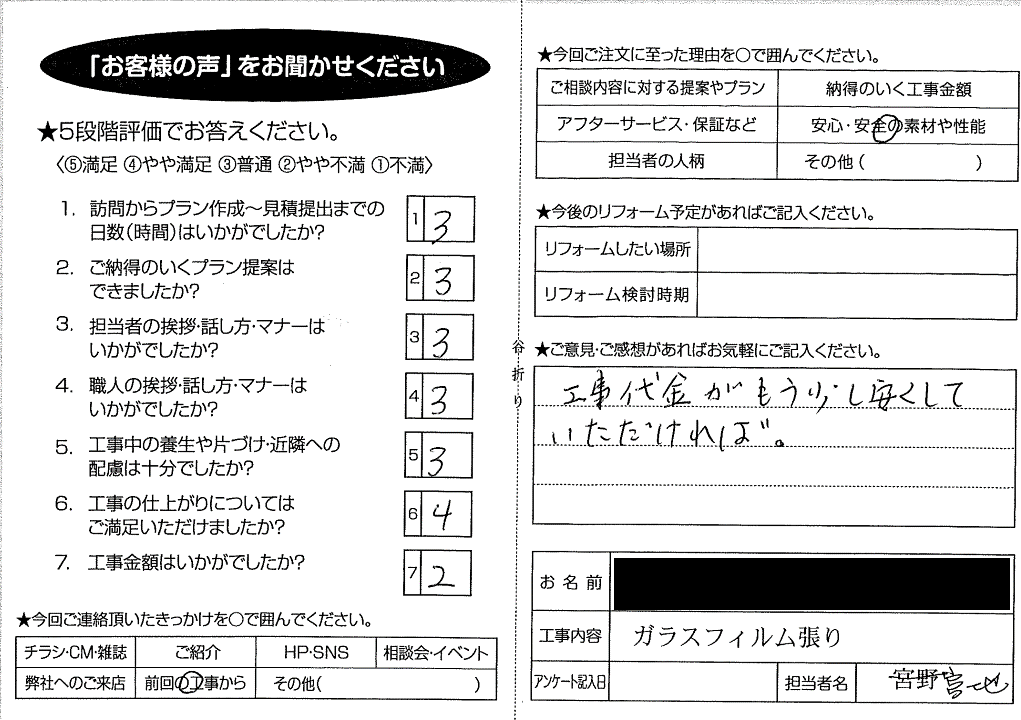 「お客様の声」をお聞かせください
★5段階評価でお答えください。
〈⑤満足 ④やや満足 ③普通 ②やや不満 ①不満〉
1. 訪問からプラン作成～見積提出までの
日数(時間)はいかがでしたか?
1 3
2. ご納得のいくプラン提案は
できましたか?
2 3
3. 担当者の挨拶・話し方・マナーは
いかがでしたか?
3 3
4. 職人の挨拶・話し方・マナーは
いかがでしたか?
4 3
5. 工事中の養生や片づけ・近隣への
配慮は十分でしたか?
5 3
6. 工事の仕上がりについては
ご満足いただけましたか?
6 4
7. 工事金額はいかがでしたか?
7 2
★今回ご連絡頂いたきっかけを○で囲んでください。
チラシ・CM・雑誌 ご紹介 HP・SNS 相談会・イベント
弊社へのご来店 前回の工事から その他( )
谷折り
★今回ご注文に至った理由を○で囲んでください。
ご相談内容に対する提案やプラン 納得のいく工事金額
アフターサービス・保証など 安心・安全の素材や性能
担当者の人柄 その他( )
★今後のリフォーム予定があればご記入ください。
リフォームしたい場所
リフォーム検討時期
★ご意見・ご感想があればお気軽にご記入ください。
工事代金がもう少し安くして
いただければ。
お名前
工事内容 ガラスフィルム張り
アンケート記入日 担当者名 宮野